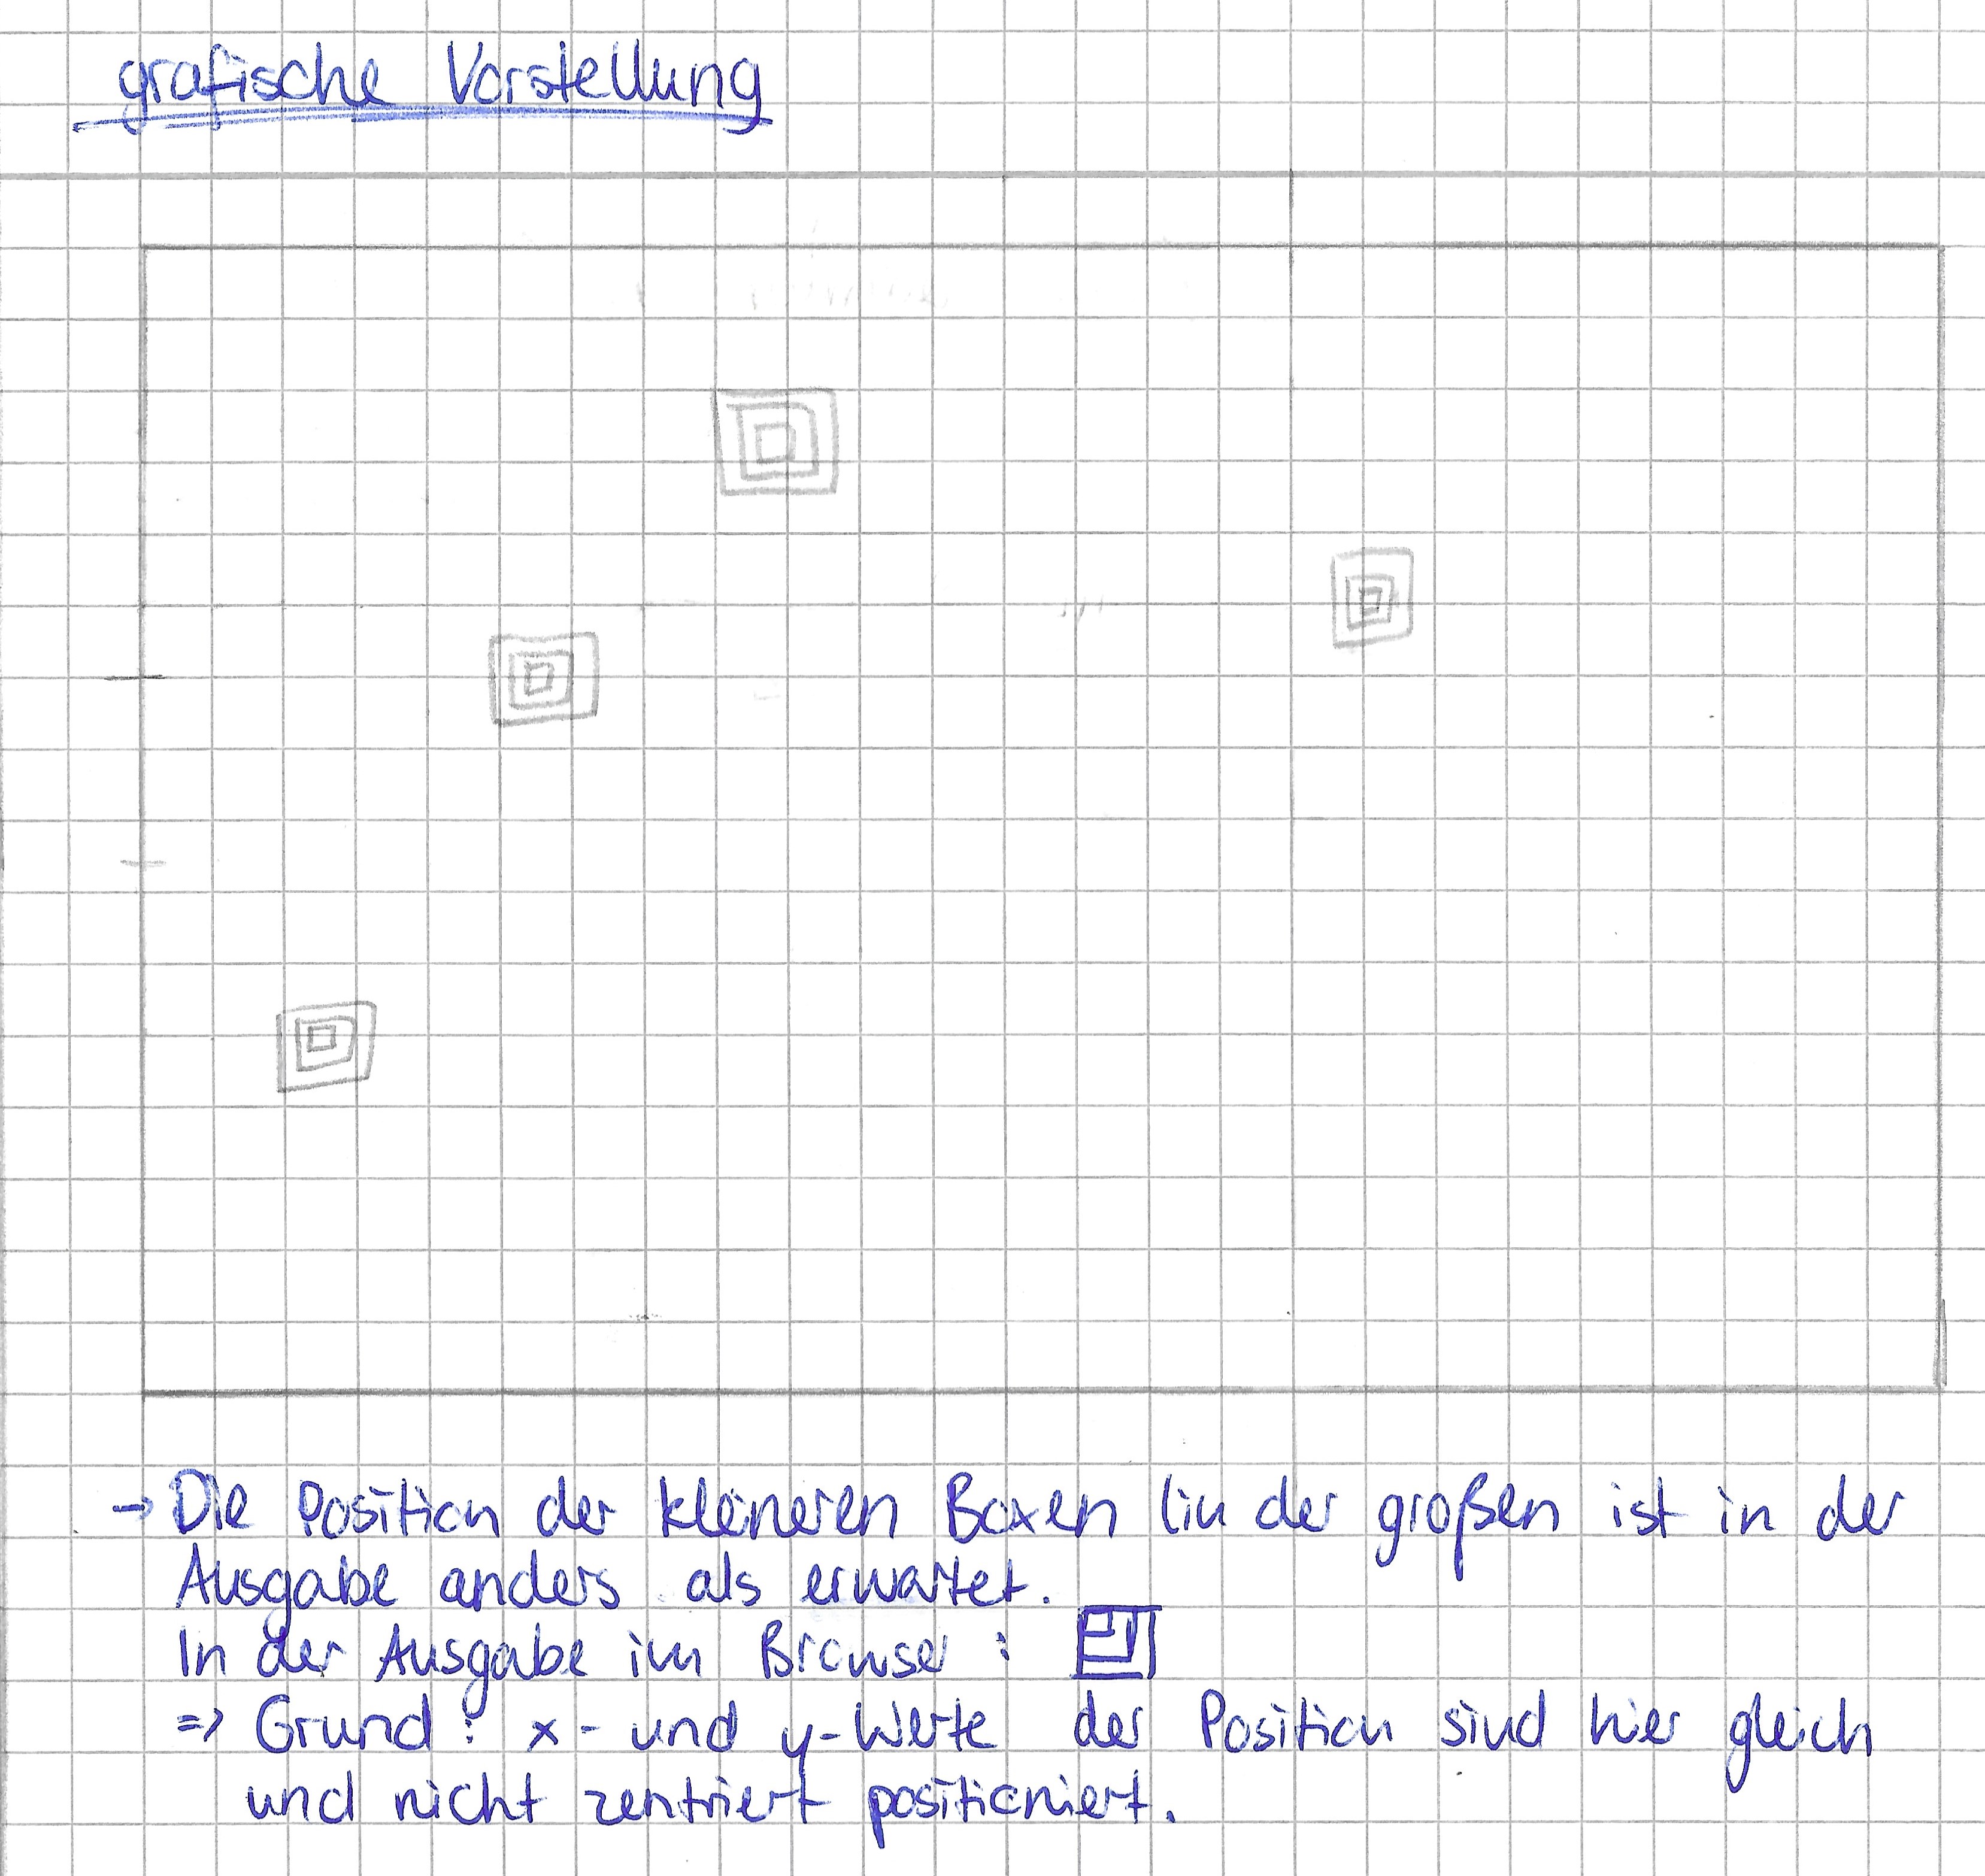 grafische Vorstellung
→ Die Position der kleineren Boxen (in der großen ist in der
Ausgabe anders als erwartet.
In der Ausgabe im Browser :
=> Grund : x- und y-Werte der Position sind hier gleich
und nicht zentriert positioniert.